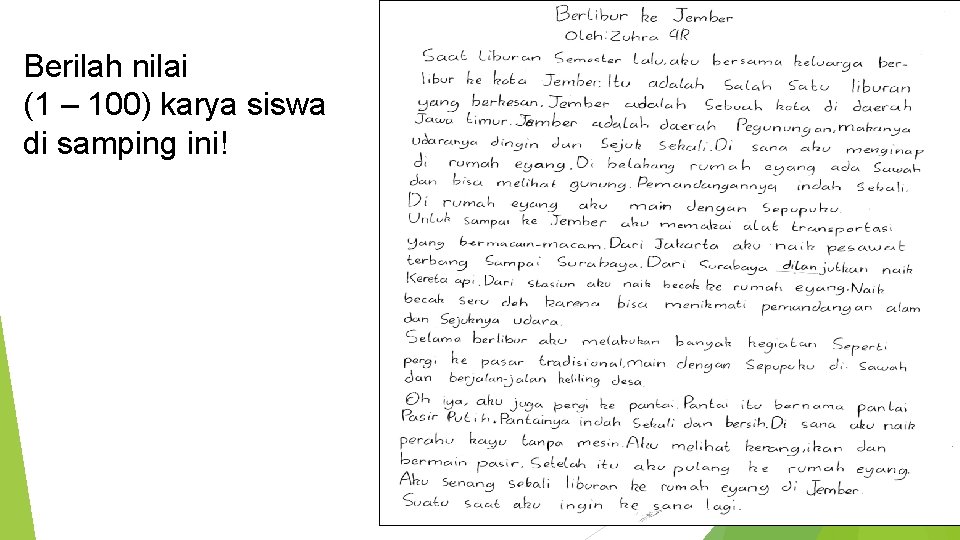 Berilah nilai
(1 – 100) karya siswa
di samping ini!
Berlibur ke Jember
Oleh: Zuhra 4R
Saat liburan Semester lalu, aku bersama keluarga ber-
libur ke kota Jember. Itu adalah Salah Satu liburan
yang berkesan. Jember adalah Sebuah kota di daerah
Jawa timur. Jember adalah daerah Pegunungan, makanya
udaranya dingin dan Sejuk Sekali. Di sana aku menginap
di rumah eyang. Di belakang rumah eyang ada Sawah
dan bisa melihat gunung. Pemandangannya indah Sekali.
Di rumah eyang aku main dengan Sepupuku.
Untuk sampai ke Jember aku memakai alat transportasi
yang bermacam-macam. Dari Jakarta aku naik pesawat
terbang Sampai Surabaya. Dari Surabaya dilanjutkan naik
Kereta api. Dari stasiun aku naik becak ke rumah eyang. Naik
becak seru deh karena bisa menikmati pemandangan alam
dan Sejuknya udara.
Selama berlibur aku melakukan banyak kegiatan Seperti
pergi ke pasar tradisional, main dengan Sepupuku di Sawah
dan berjalan-jalan keliling desa.
Oh iya, aku juga pergi ke pantai. Pantai itu bernama pantai
Pasir Putih. Pantainya indah Sekali dan bersih. Di sana aku naik
perahu kayu tanpa mesin. Aku melihat kerang, ikan dan
bermain pasir. Setelah itu aku pulang ke rumah eyang.
Aku senang sekali liburan ke rumah eyang di Jember.
Suatu saat aku ingin ke sana lagi.